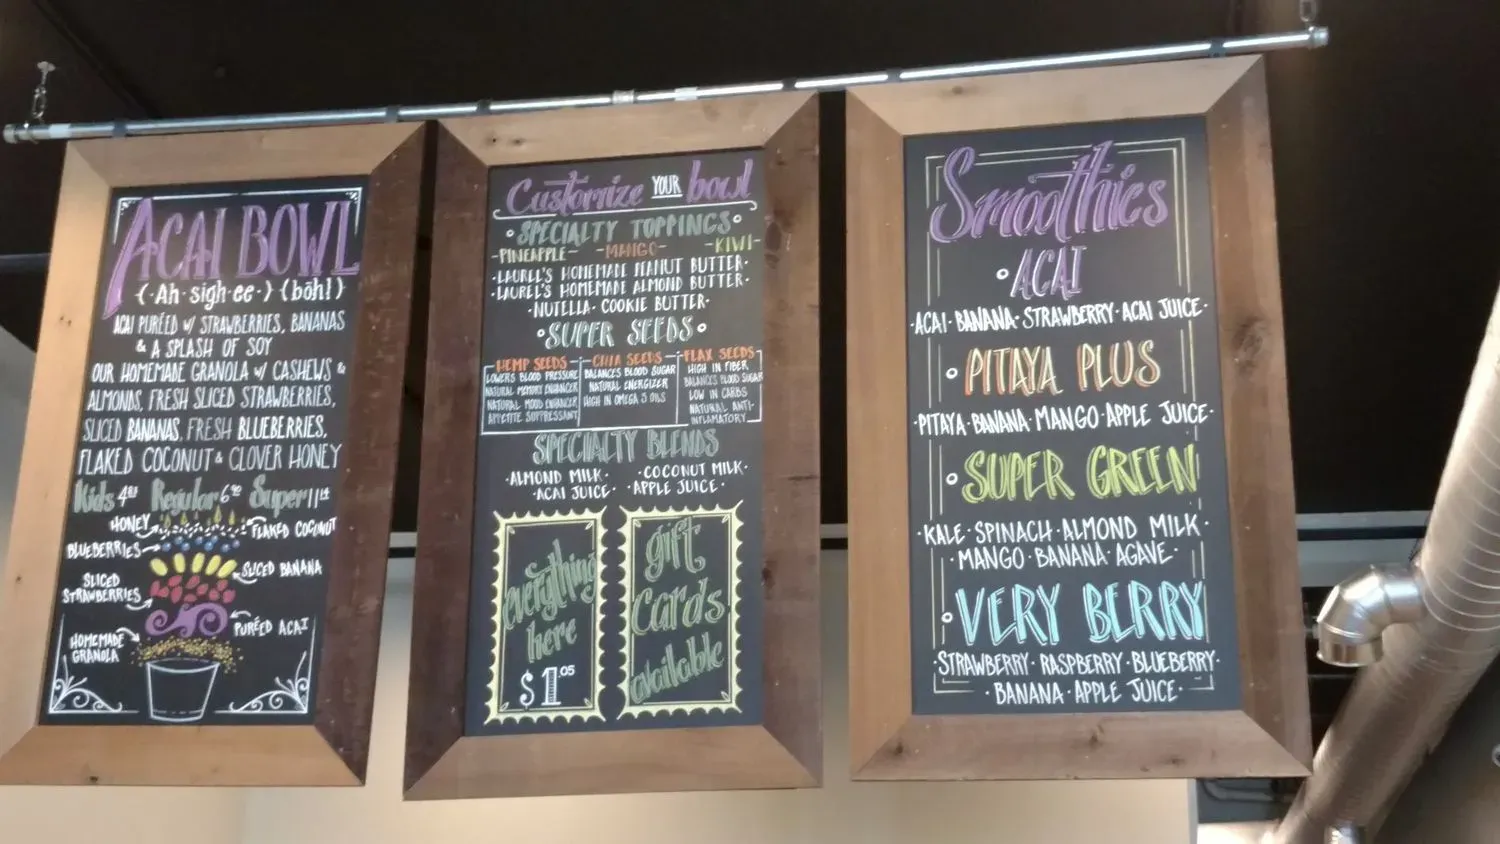 ACAI BOWL
(·Ah·sigh·ee·) (bōhl)
ACAI PURÉED W/ STRAWBERRIES, BANANAS
& A SPLASH OF SOY
OUR HOMEMADE GRANOLA W/ CASHEWS &
ALMONDS, FRESH SLICED STRAWBERRIES,
SLICED BANANAS, FRESH BLUEBERRIES,
FLAKED COCONUT & CLOVER HONEY
Kids Regular Super
HONEY
FLAKED COCONUT
BLUEBERRIES
SLICED BANANA
SLICED
STRAWBERRIES
PURÉED ACAI
HOMEMADE
GRANOLA
Customize YOUR bowl
SPECIALTY TOPPINGS
-PINEAPPLE- -MANGO- -KIWI-
·LAUREL'S HOMEMADE PEANUT BUTTER·
·LAUREL'S HOMEMADE ALMOND BUTTER·
·NUTELLA· COOKIE BUTTER·
SUPER SEEDS
HEMP SEEDS
LOWERS BLOOD PRESSURE
NATURAL MEMORY ENHANCER
NATURAL MOOD ENHANCER
APPETITE SUPPRESSANT
CHIA SEEDS
BALANCES BLOOD SUGAR
NATURAL ENERGIZER
HIGH IN OMEGA 3 OILS
FLAX SEEDS
HIGH IN FIBER
BALANCES BLOOD SUGAR
LOW IN CARBS
NATURAL ANTI-
INFLAMATORY
SPECIALTY BLENDS
·ALMOND MILK· ·COCONUT MILK·
·ACAI JUICE· ·APPLE JUICE·
everything
here
$1.05
gift
cards
available
Smoothies
ACAI
·ACAI·BANANA·STRAWBERRY·ACAI JUICE·
PITAYA PLUS
·PITAYA·BANANA·MANGO·APPLE JUICE·
SUPER GREEN
·KALE·SPINACH·ALMOND MILK·
·MANGO·BANANA·AGAVE·
VERY BERRY
·STRAWBERRY·RASPBERRY·BLUEBERRY·
·BANANA·APPLE JUICE·